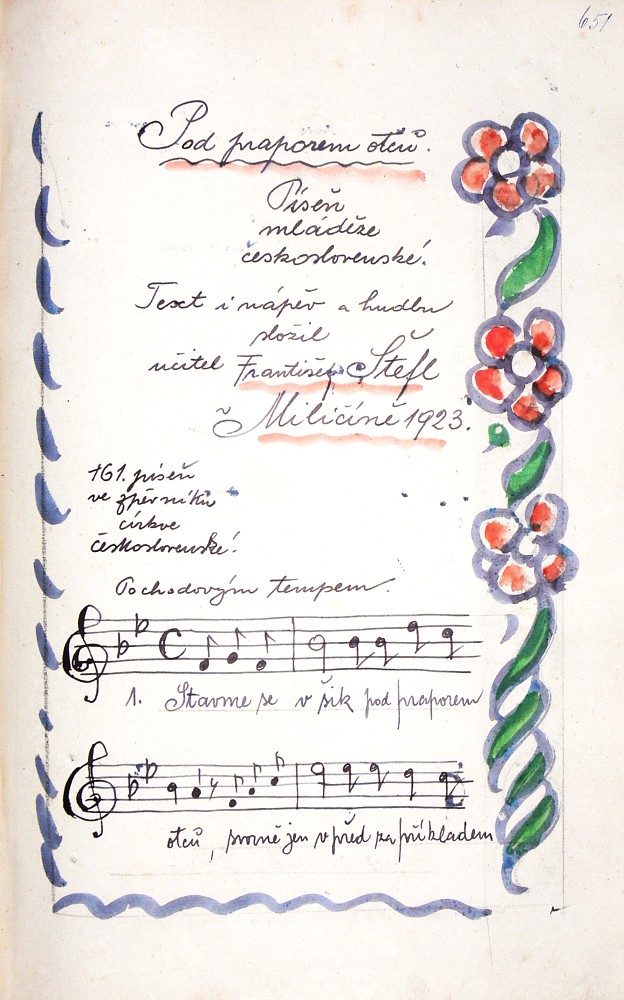 651
Pod praporem otců.
Píseň
mládeže
československé.
Text i nápěv a hudbu
složil
učitel František Štefl
v Miličíně 1923.
161. píseň
ve zpěvníku
církve
československé.
Pochodovým tempem.
1. Stavme se v šik pod praporem
otců, svorně jen vpřed za příkladem